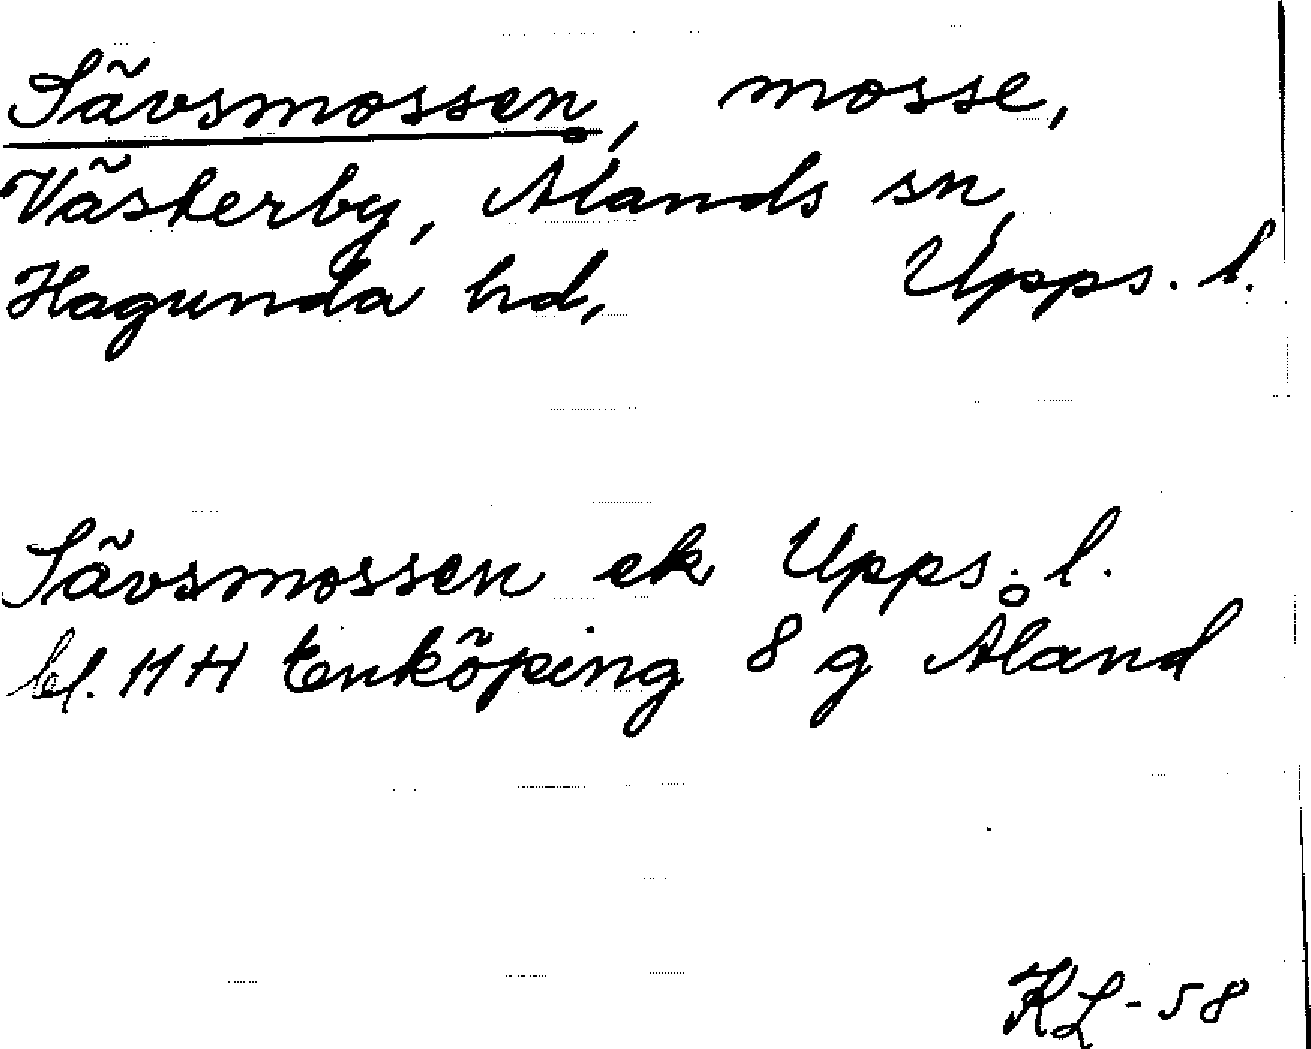 Sävsmossen, mosse,
Västerby, Ålands sn,
Hagunda hd, Upps. l.
Sävsmossen ek Upps. l.
bl. 114 Enköping 8 g Åland
KL-58